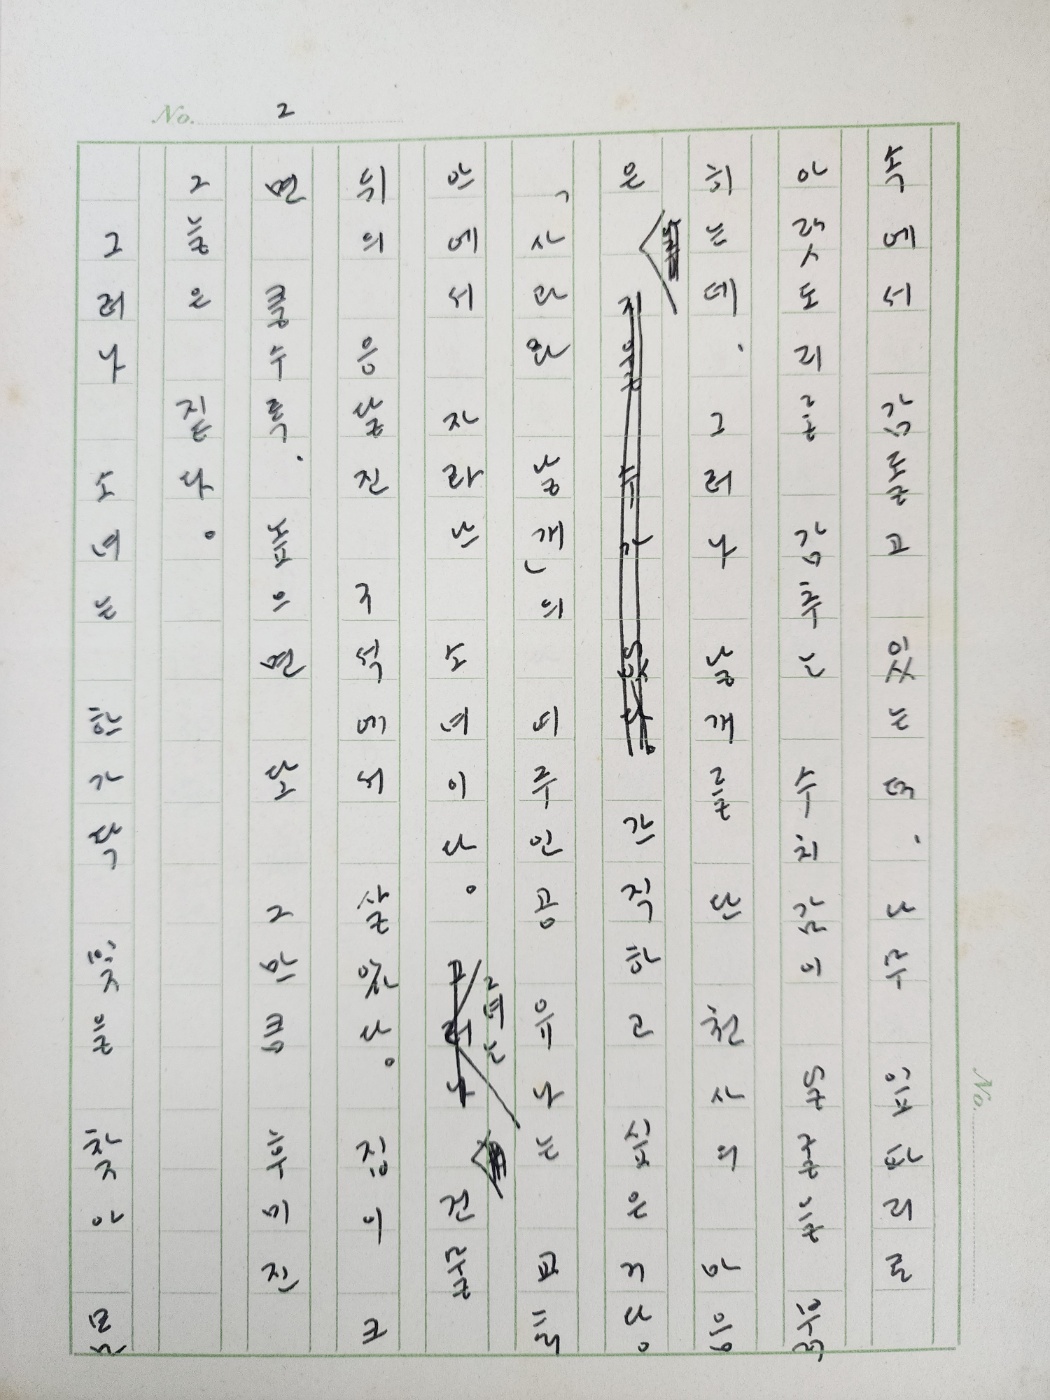 No. 2
속에서 감돌고 있는데. 나무 잎파리로
아랫도리를 감추는 수치감이 얼굴을 붉
히는데. 그러나 날개를 단 천사의 마음
은 지울 수가 없다 간직하고 싶은 거다.
, 사라와 날개」의 여주인공 유나는 교회
안에서 자라난 소녀이다. 그러나 건물
뒤의 응달진 구석에서 살았다. 집이 크
면 클수록. 높으면 그만큼 후미진
그늘은 짙다.
그러나 소녀는 한가닥 빛을 찾아
No.